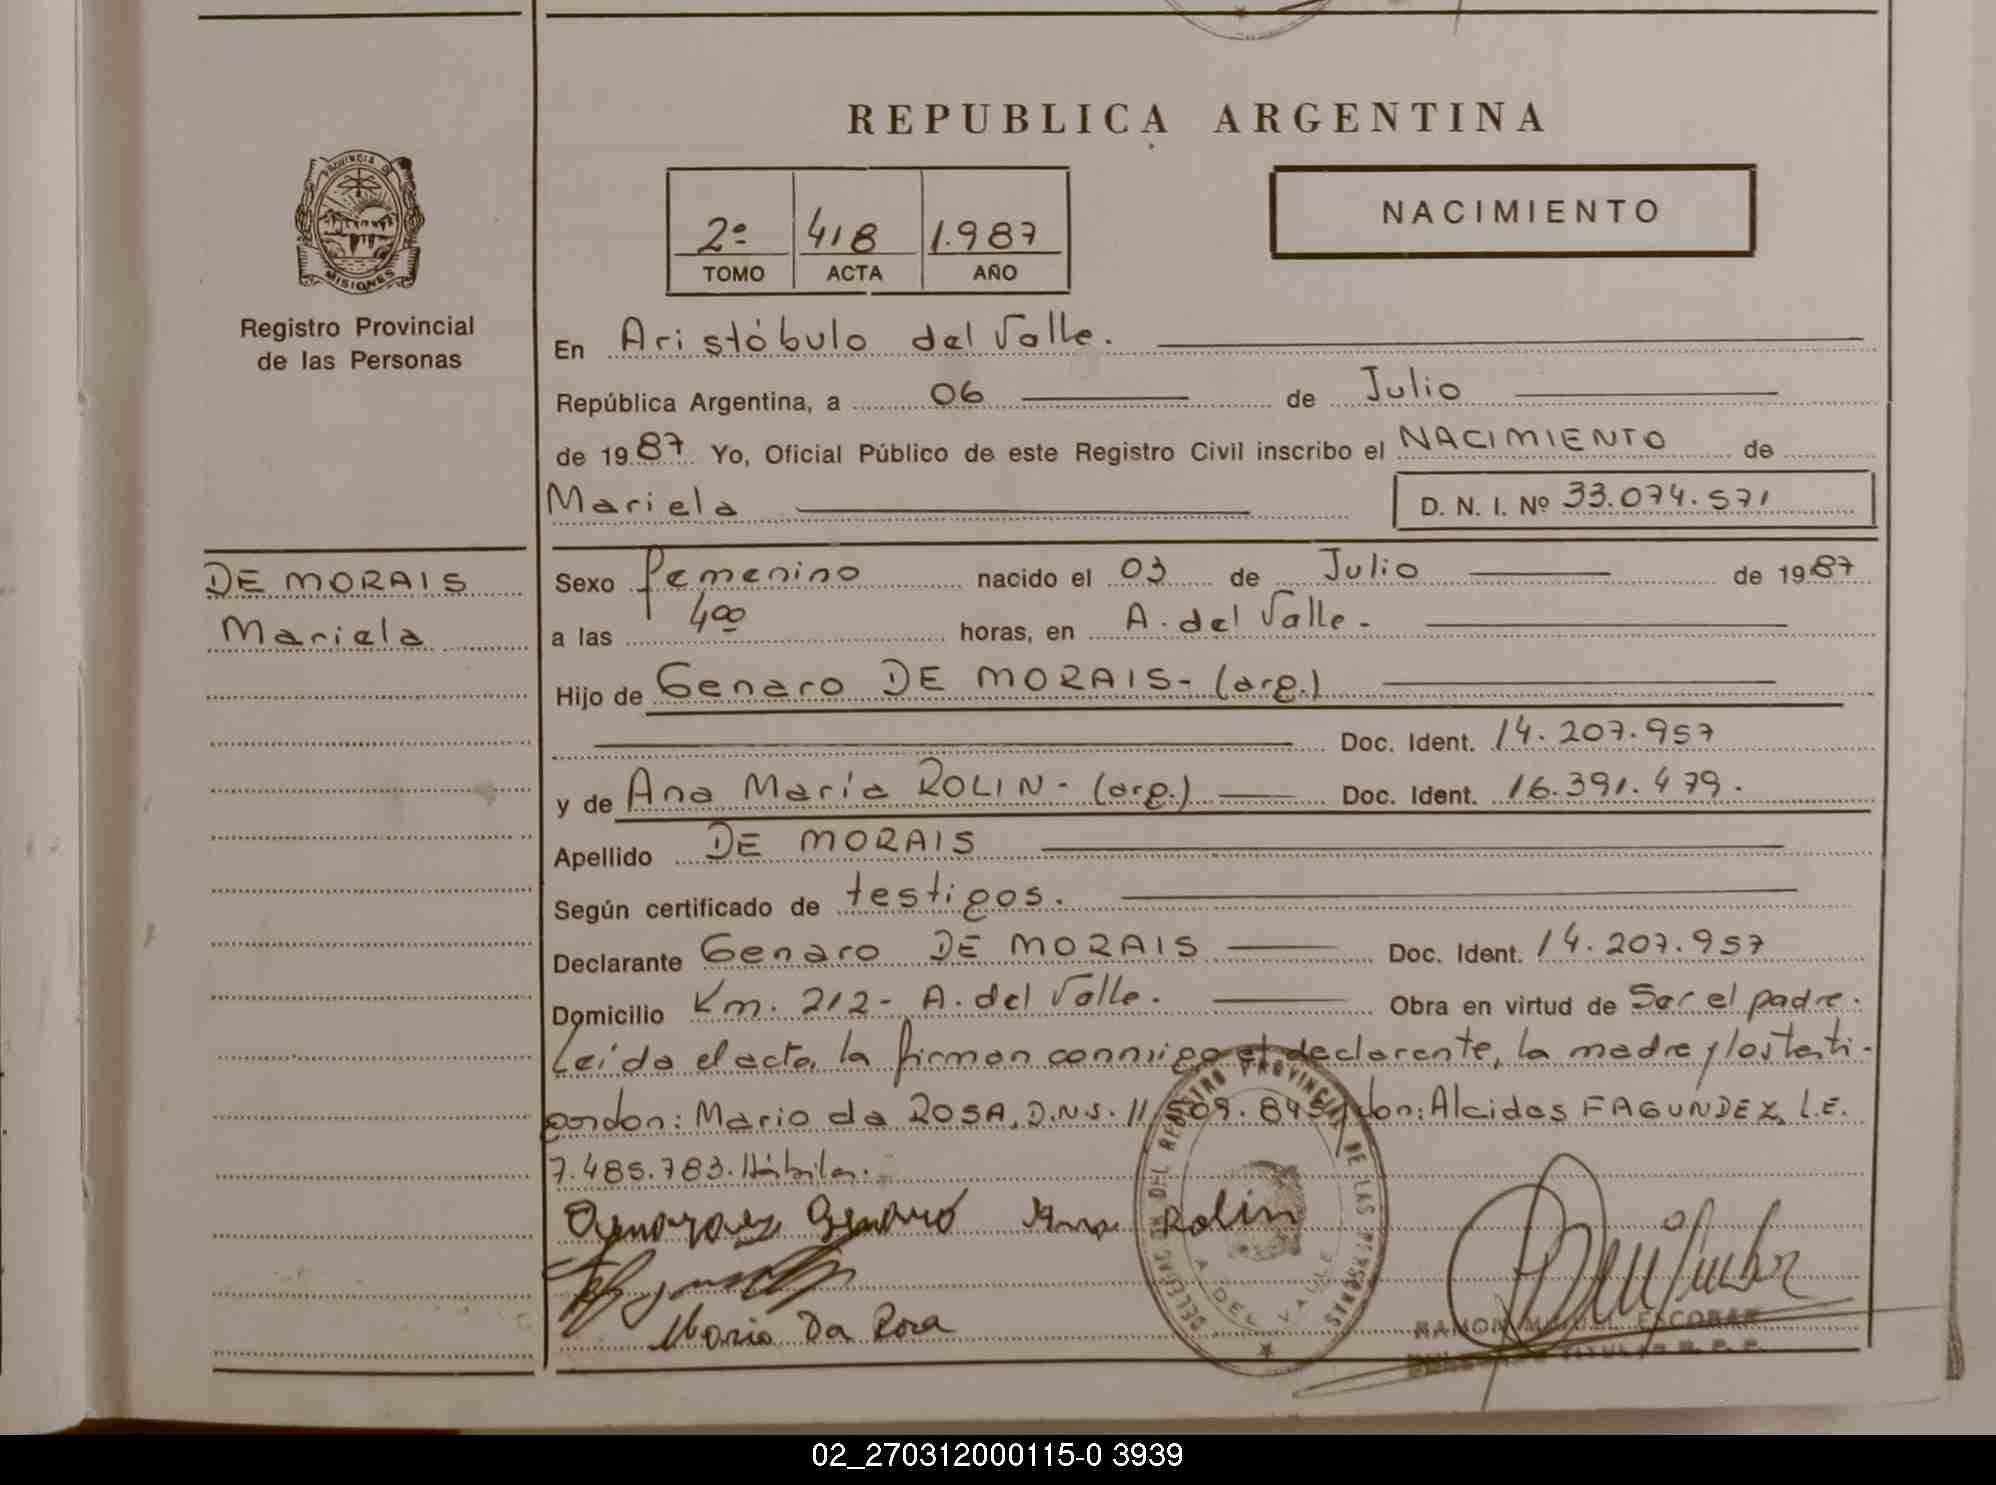 REPUBLICA ARGENTINA
PROVINCIA DE
MISIONES
Registro Provincial
de las Personas
2º 418 1.987
TOMO ACTA AÑO
NACIMIENTO
En Aristóbulo del Valle.
República Argentina, a 06 de Julio
de 1987 Yo, Oficial Público de este Registro Civil inscribo el NACIMIENTO de
Mariela D. N. I. Nº 33.074.571
DE MORAIS
Mariela
Sexo femenino nacido el 03 de Julio de 1987
a las 4 00 horas, en A. del Valle.-
Hijo de Genaro DE MORAIS- (arg.)
Doc. Ident. 14.207.957
y de Ana María ROLIN- (arg.) Doc. Ident. 16.391.479.
Apellido DE MORAIS
Según certificado de testigos.
Declarante Genaro DE MORAIS Doc. Ident. 14.207.957
Domicilio Km. 212- A. del Valle. Obra en virtud de Ser el padre.
Leída el acta, la firman conmigo el declarante, la madre y los testi-
gos don: Mario da ROSA, D.N.I. 11.509.845 y don: Alcides FAGUNDEZ, L.E.
7.485.783. Hábiles.
Genaro Ana Rolin
Mario Da Rosa
DELEGACION DEL REGISTRO PROVINCIAL DE LAS PERSONAS
A. DEL VALLE
RAMON MIGUEL ESCOBAR
DELEGADO TITULAR R. P. P.
02_270312000115-0 3939